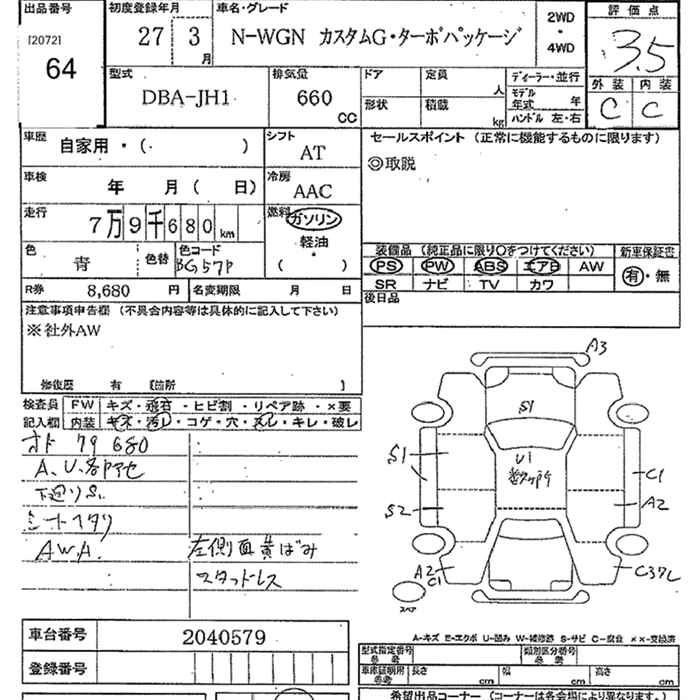 出品番号 初度登録年月 車名・グレード 2WD・4WD 評価点
[2072]
64 27 3月 N-WGN カスタムG・ターボパッケージ 3.5
型式 排気量 ドア 定員 人 ディーラー・並行 外装 内装
DBA-JH1 660 CC 形状 積載 kg モデル年式 年 C C
ハンドル 左・右
車歴 自家用・( ) シフト AT セールスポイント (正常に機能するものに限ります)
◎取説
車検 年 月( 日) 冷房 AAC
走行 7万9千680km 燃料 ガソリン
軽油・
( )
色 青 色替 色コード BG57P
装備品 (純正品に限り○をつけてください) 新車保証書
PS PW ABS エアB AW 有・無
SR ナビ TV カワ
R券 8,680円 名変期限 月 日 後日品
注意事項申告欄 (不具合内容等は具体的に記入して下さい)
※社外AW
修復歴 有 [箇所 ]
検査員 FW キズ・飛石・ヒビ割・リペア跡・×要
記入欄 内装 キズ・汚レ・コゲ・穴・スレ・キレ・破レ
79680
A、U、各アセ
下廻りS
A.W.A.
左側面黄ばみ
スタッドレス
A3
S1
S1
U1
C1
S2
A2
A2
C1
C37L
スペア
A-キズ E-エクボ U-凹み W-補修跡 S-サビ C-腐食 ××-交換済
車台番号 2040579
登録番号
型式指定番号 参考 類別区分番号 参考
車庫証明用 参考 長さ cm 幅 cm 高さ cm
希望出品コーナー (コーナーは各会場により異なります。)